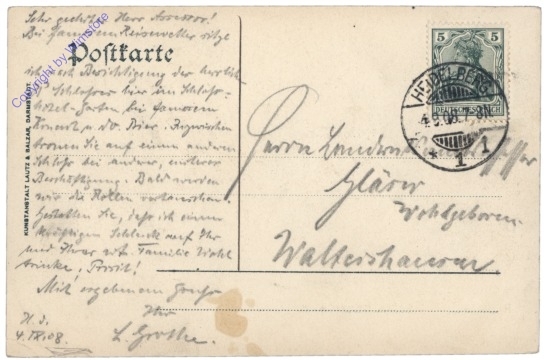 Sehr geehrter Herr Assessor!
Bei famosem Reisewetter sitze
Postkarte
ich nach Besichtigung der herrlich
Schlosses hier im Schloss-
Hotel-Garten, bei famosem
Konzert u. do. Bier. Inzwischen
thronen Sie auf einem anderen
Schloss bei anderer,
Beschäftigung. Bald werden
wir die Rollen vertauschen.
Gestatten Sie, dass ich einen
kräftigen Schluck auf Ihr
und Ihrer Familie Wohl
trinke, Prosit!
Mit ergebenem Gruss
Ihr
L. Grothe.
H. d.
4.IX.08.
KUNSTANSTALT LAUTZ & BALZAR, DARMSTADT
Copyright by Timstore
5 5
DEUTSCHES REICH
HEIDELBERG
4.9.08. 7-8N
* 1 1
Herrn
Gläser
Wohlgeboren
Waltershausen